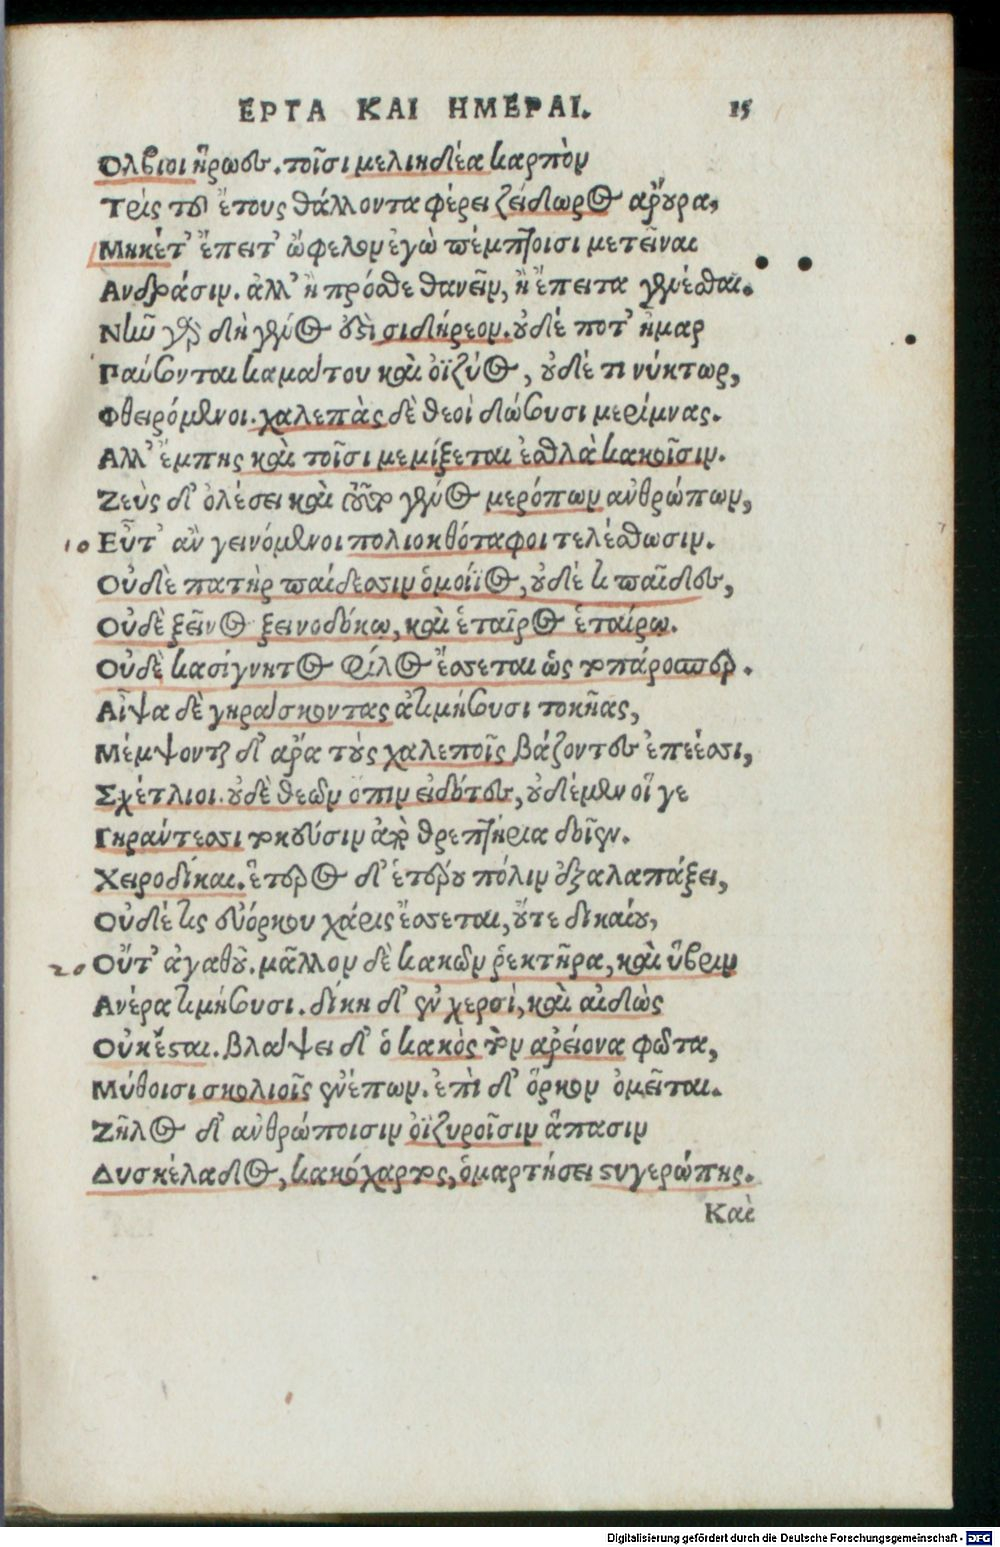 ΕΡΓΑ ΚΑΙ ΗΜΕΡΑΙ. 15
Ολβιοι ἥρωες. τοῖσι μελιηδέα καρπὸν
Τρὶς τοῦ ἔτους θάλλοντα φέρει ζείδωρος ἄρουρα,
Μηκέτ' ἔπειτ' ὤφελον ἐγὼ πέμπτοισι μετεῖναι
Ανδράσιν. ἀλλ' ἢ πρόσθε θανεῖν, ἢ ἔπειτα γενέσθαι.
Νῦν γὰρ δὴ γένος ὀστὶ σιδήρεον. οὐδέ ποτ' ἦμαρ
Παύσονται καμάτου καὶ ὀϊζύος, οὐδέ τι νύκτωρ,
Φθειρόμενοι. χαλεπὰς δὲ θεοὶ δώσουσι μερίμνας.
Αλλ' ἔμπης καὶ τοῖσι μεμίξεται ἐσθλὰ κακοῖσιν.
Ζεὺς δ' ὀλέσει καὶ τοῦτο γένος μερόπων ἀνθρώπων,
10 Εὖτ' ἂν γεινόμενοι πολιοκρόταφοι τελέθωσιν.
Οὐδὲ πατὴρ παίδεσσιν ὁμοίϊος, οὐδέ τι παῖδες,
Οὐδὲ ξεῖνος ξεινοδόκῳ, καὶ ἑταῖρος ἑταίρῳ.
Οὐδὲ κασίγνητος φίλος ἔσσεται ὡς τοπάροσπερ.
Αἶψα δὲ γηράσκοντας ἀτιμήσουσι τοκῆας,
Μέμψονται δ' ἄρα τοὺς χαλεποῖς βάζοντες ἐπέεσσι,
Σχέτλιοι. οὐδὲ θεῶν ὄπιν εἰδότες, οὐδέ μεν οἵ γε
Γηράντεσσι τοκεῦσιν ἀπὸ θρεπτήρια δοῖεν.
Χειροδίκαι. ἕτερος δ' ἑτέρου πόλιν ἐξαλαπάξει,
Οὐδέ τις εὐόρκου χάρις ἔσσεται, οὔτε δικαίου,
20 Οὔτ' ἀγαθοῦ. μᾶλλον δὲ κακῶν ῥεκτῆρα, καὶ ὕβριν
Ανέρα τιμήσουσι. δίκη δ' ἐν χερσὶ, καὶ αἰδὼς
Οὐκ ἔσται. βλάψει δ' ὁ κακὸς τὸν ἀρείονα φῶτα,
Μύθοισι σκολιοῖς ἐνέπων. ἐπὶ δ' ὅρκον ὀμεῖται.
Ζῆλος δ' ἀνθρώποισιν ὀϊζυροῖσιν ἅπασιν
Δυσκέλαδος, κακόχαρτος, ὁμαρτήσει στυγερώπης.
Καὶ
Digitalisierung gefördert durch die Deutsche Forschungsgemeinschaft - DFG